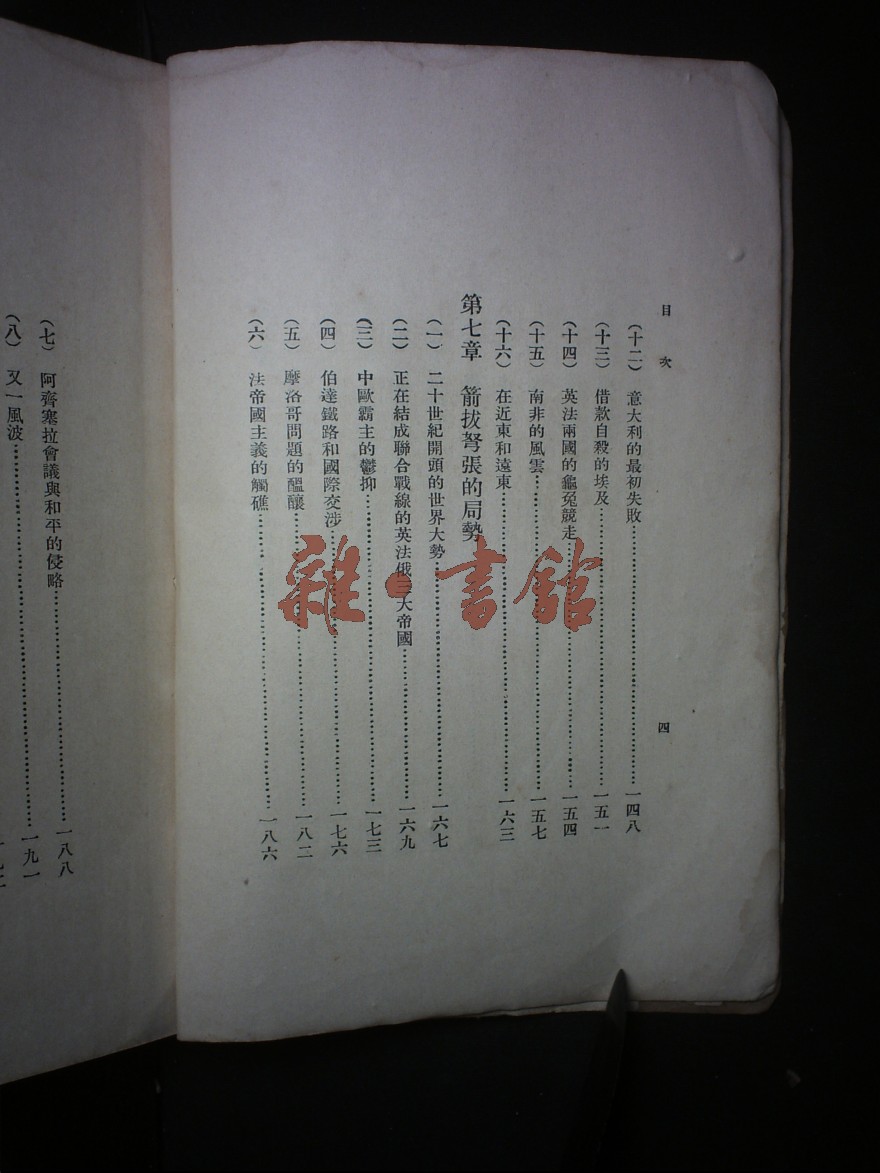 目次
四
(十二) 意大利的最初失敗……一四八
(十三) 借款自殺的埃及……一五一
(十四) 英法兩國的龜兔競走……一五四
(十五) 南非的風雲……一五七
(十六) 在近東和遠東……一六三
第七章 箭拔弩張的局勢
(一) 二十世紀開頭的世界大勢……一六七
(二) 正在結成聯合戰線的英法俄三大帝國……一六九
(三) 中歐霸主的鬱抑……一七三
(四) 伯達鐵路和國際交涉……一七六
(五) 摩洛哥問題的醞釀……一八二
(六) 法帝國主義的觸礁……一八六
(七) 阿齊塞拉會議與和平的侵略……一八八
(八) 又一風波……一九一
雜·書館